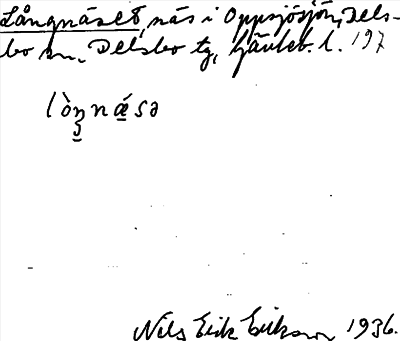 Långnäset, näs i Oppsjösjön, Dels-
bo sn, Delsbo tg, Gävleb. l. 197
lòŋnǽsə
Nils Erik Eriksson 1936.